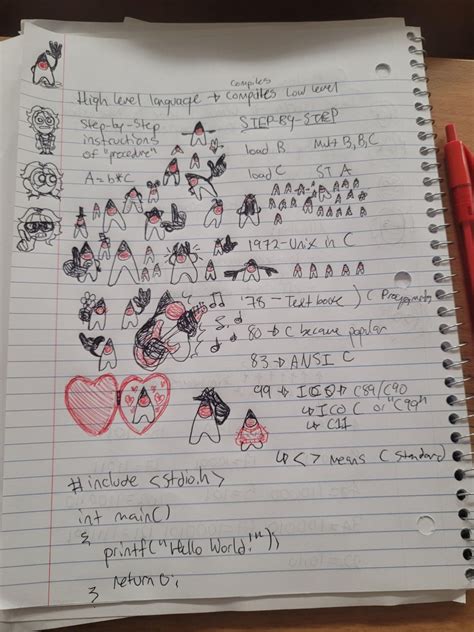 Compiles
High level language → Compiles Low level
Step-by-Step
instructions
of "procedure"
A=b*C
STEP-BY-STEP
load B Mult B,B,C
load C ST A
1972-Unix in C
'78 - Text book C Programming
80 → C became popular
83 → ANSI C
99 → C89/C90
↳ C or "C99"
↳ C11
↳ < > means C Standard
#include <stdio.h>
int main()
{
printf("Hello World!");
return 0;
}